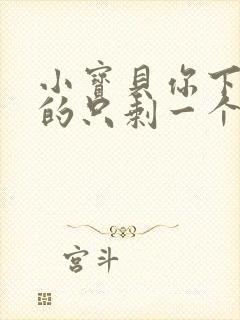 小寶貝你下
的只剩一个
宫斗